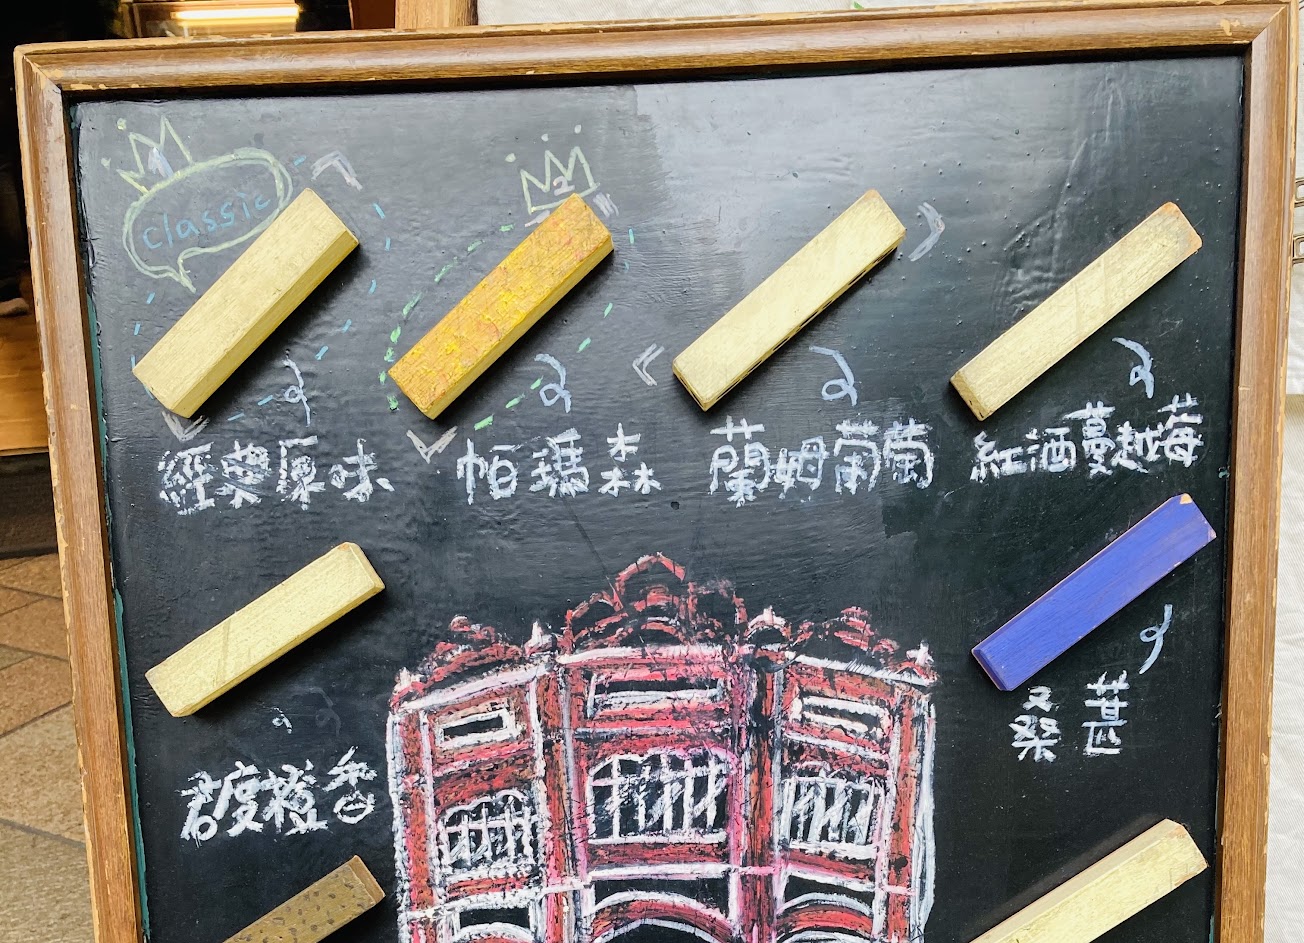 1
classic
2
經典原味
帕瑪森
蘭姆葡萄
紅酒蔓越莓
桑葚
君度橙香